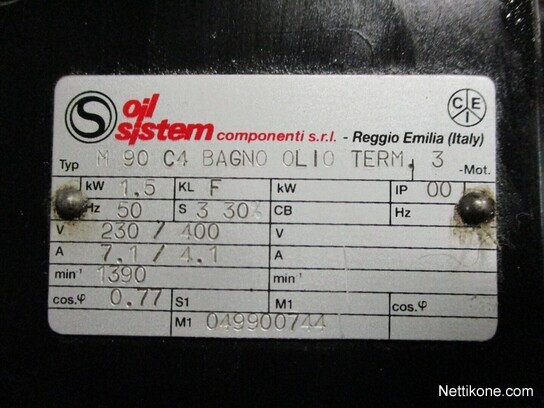 S oil
sistem componenti s.r.l. - Reggio Emilia (Italy)
CEI
Typ M 90 C4 BAGNO OLIO TERM. 3 -Mot.
kW 1.5 KL F kW IP 00
Hz 50 S 3 30% CB Hz
V 230 / 400 V
A 7.1 / 4.1 A
min-1 1390 min-1
cos.φ 0.77 S1 M1 cos.φ
M1 049900744
Nettikone.com